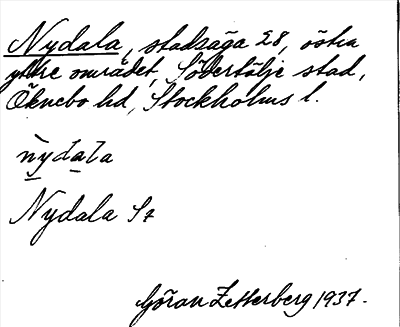 Nydala, stadsäga 28, östra
yttre området, Södertälje stad,
Öknebo hd, Stockholms l.
nydala
Nydala S7
Göran Zetterberg 1937.